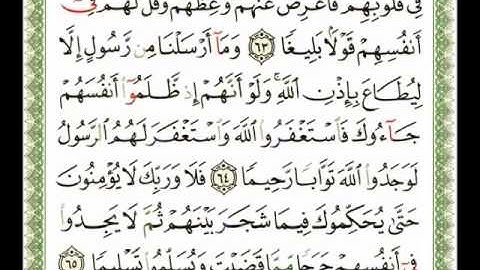 فِي قُلُوبِهِمْ فَأَعْرِضْ عَنْهُمْ وَعِظْهُمْ وَقُل لَّهُمْ فِىٓ
أَنفُسِهِمْ قَوْلًۢا بَلِيغًا ٦٣ وَمَآ أَرْسَلْنَا مِن رَّسُولٍ إِلَّا
لِيُطَاعَ بِإِذْنِ ٱللَّهِ ۚ وَلَوْ أَنَّهُمْ إِذ ظَّلَمُوٓا۟ أَنفُسَهُمْ
جَآءُوكَ فَٱسْتَغْفَرُوا۟ ٱللَّهَ وَٱسْتَغْفَرَ لَهُمُ ٱلرَّسُولُ
لَوَجَدُوا۟ ٱللَّهَ تَوَّابًا رَّحِيمًا ٦٤ فَلَا وَرَبِّكَ لَا يُؤْمِنُونَ
حَتَّىٰ يُحَكِّمُوكَ فِيمَا شَجَرَ بَيْنَهُمْ ثُمَّ لَا يَجِدُوا۟
فِىٓ أَنفُسِهِمْ حَرَجًا مِّمَّا قَضَيْتَ وَيُسَلِّمُوا۟ تَسْلِيمًا ٦٥